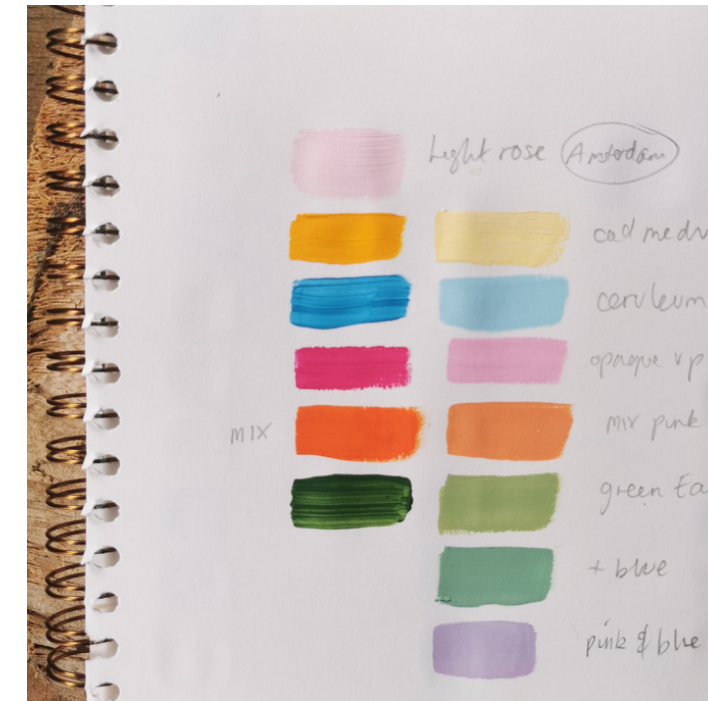 Light rose Amsterdam
cad
ceruleum
opaque vp
mix mix pink
green Ea
+ blue
pink & blue